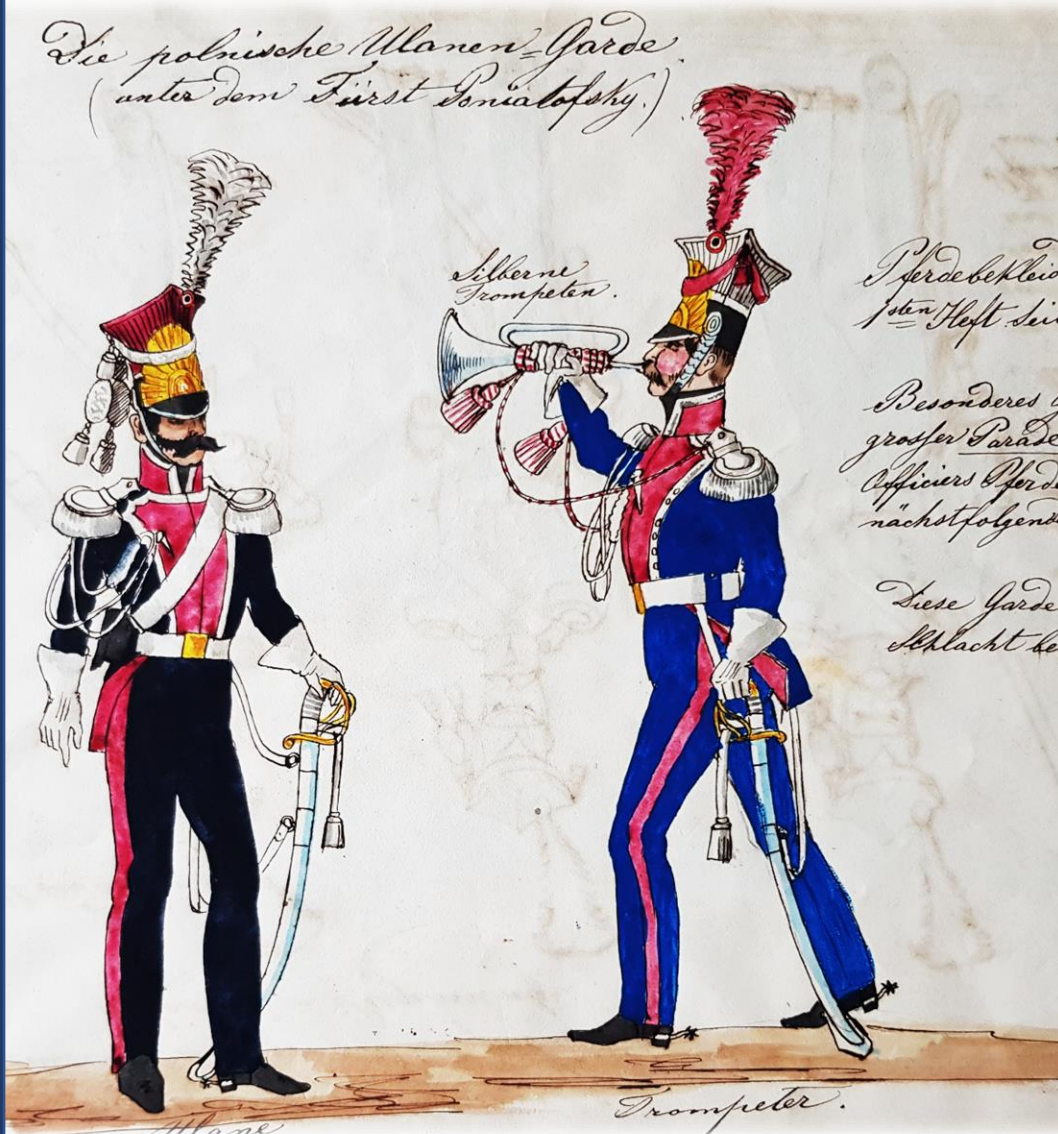 Die polnische Ulanen-Garde
(unter dem Fürst Poniatofsky.)
Silberne
Trompeten.
Pferdebekleid
1sten Heft Sei
Besonderes
grosser Parade
Officiers Pferde
nächstfolgend
Diese Garde
Schlacht be
Trompeter.
Ulane